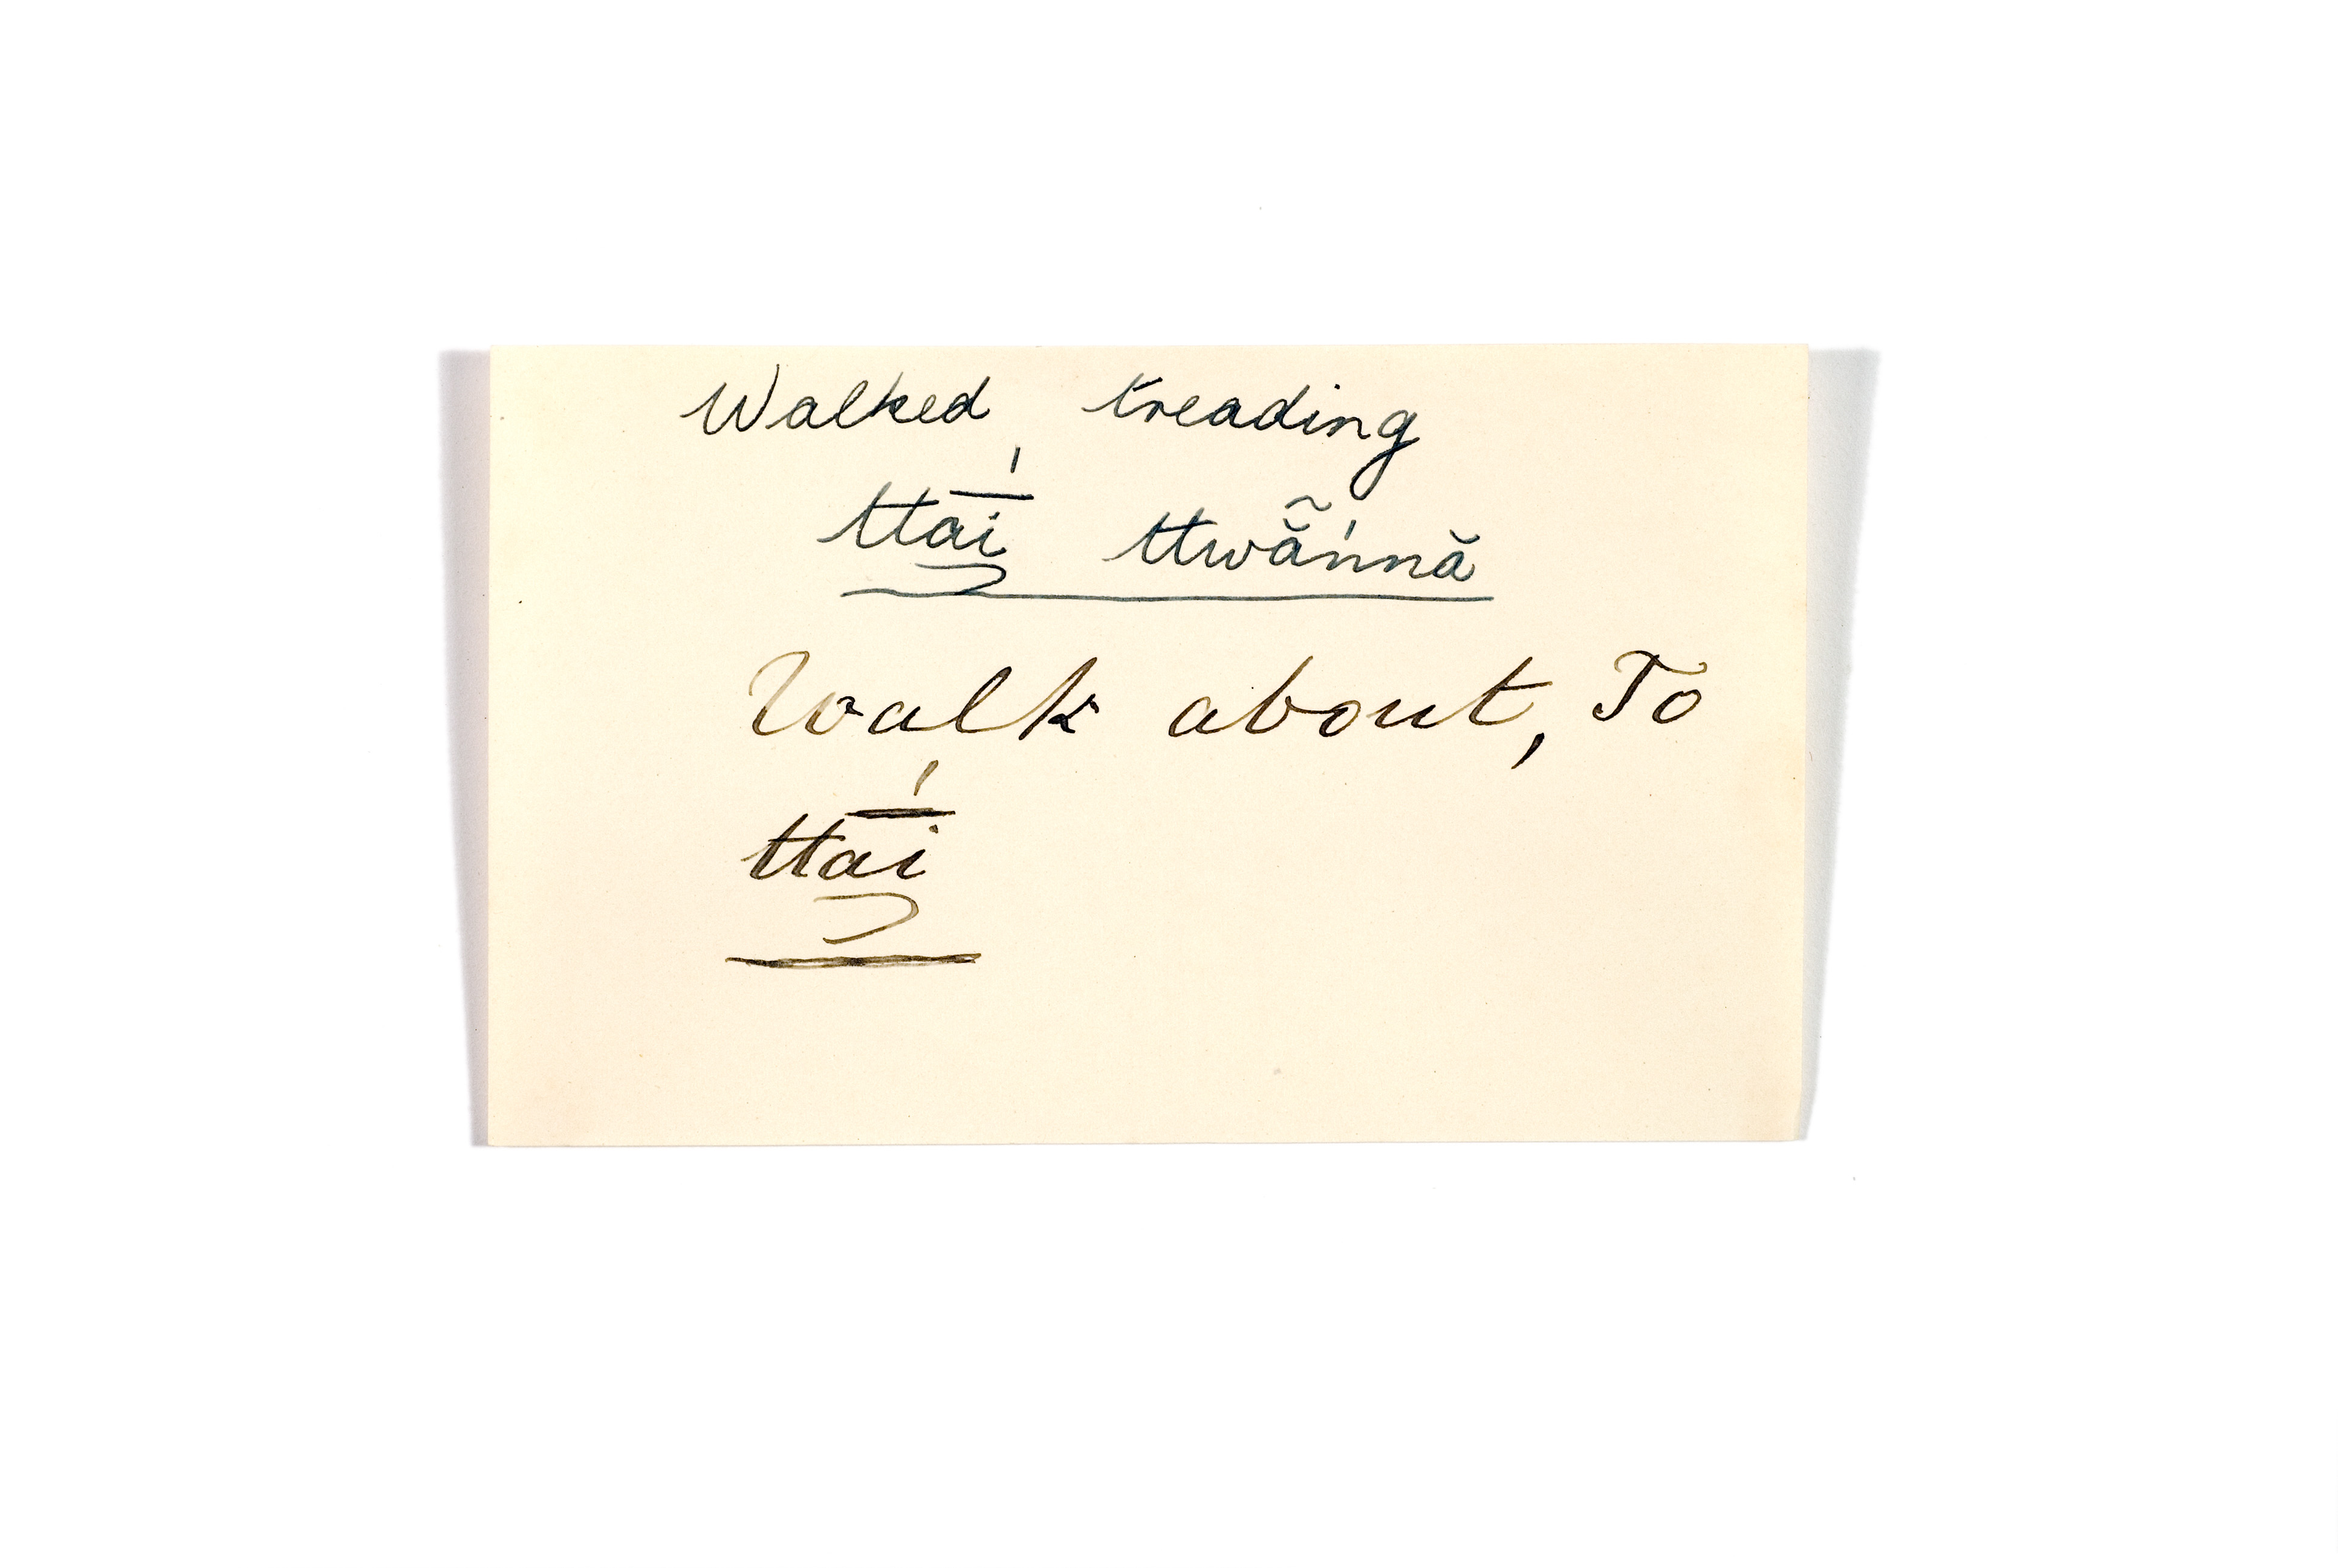 Walked treading
tta̅i̅́ ttwã̆́nnă
Walk about, To
tta̅i̅́